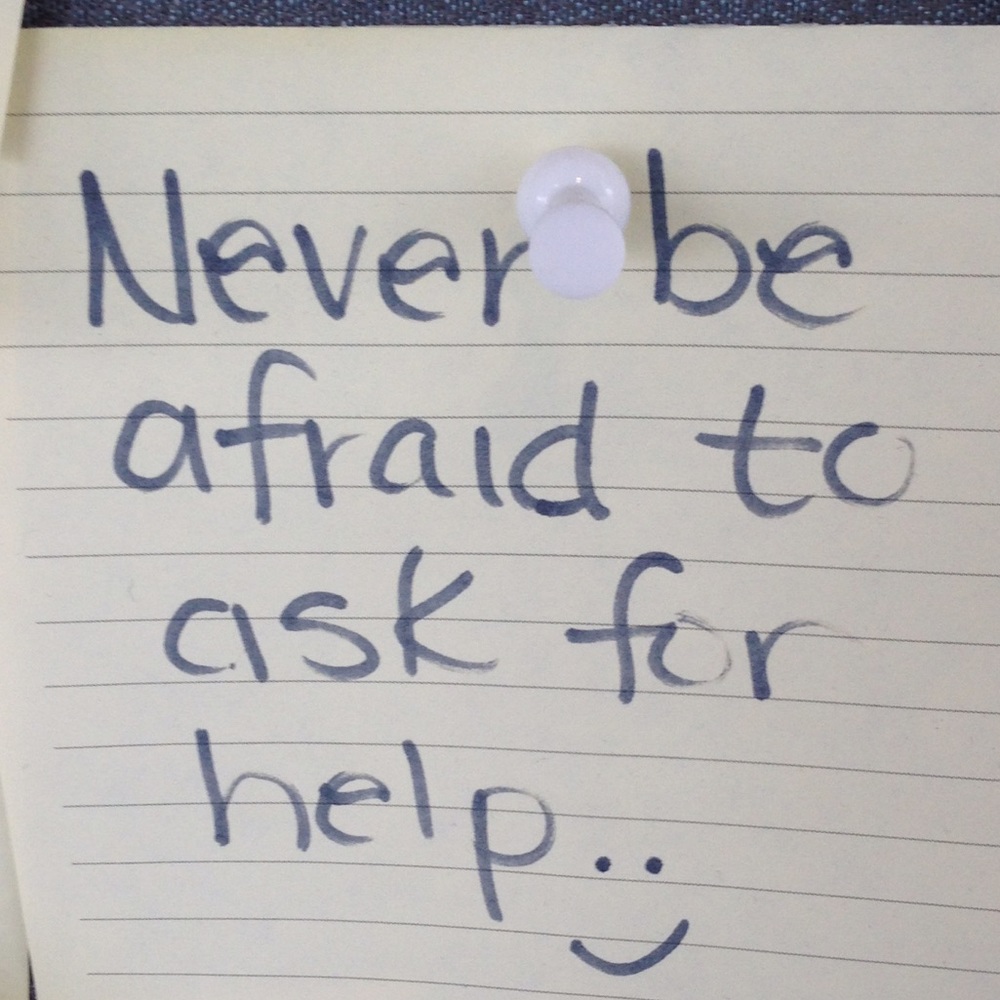 Never be
afraid to
ask for
help..